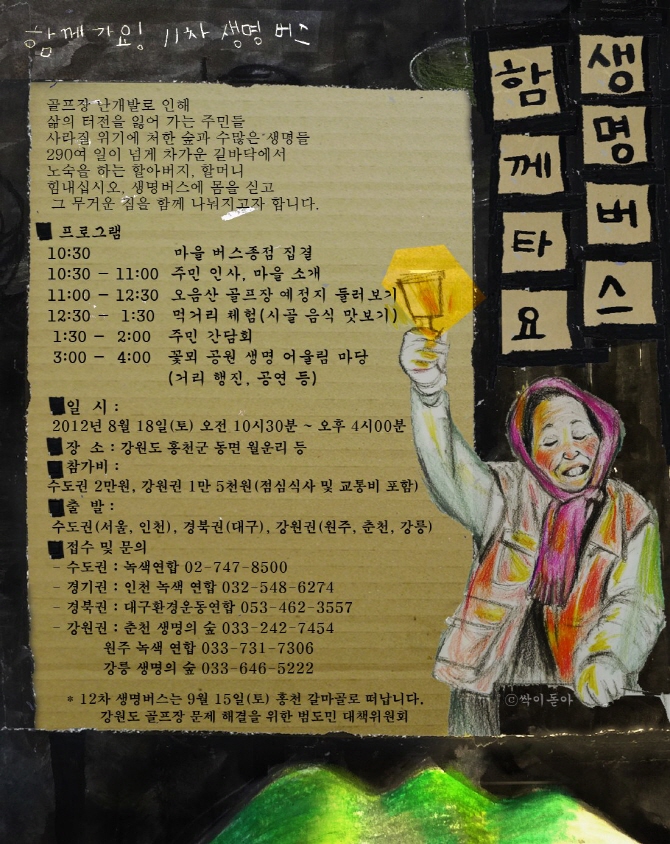 함께 가요! 11차 생명 버스
생명버스
함께타요
골프장 난개발로 인해
삶의 터전을 잃어 가는 주민들
사라질 위기에 처한 숲과 수많은 생명들
290여 일이 넘게 차가운 길바닥에서
노숙을 하는 할아버지, 할머니
힘내십시오, 생명버스에 몸을 싣고
그 무거운 짐을 함께 나눠지고자 합니다.
프로그램
10:30 마을 버스종점 집결
10:30 - 11:00 주민 인사, 마을 소개
11:00 - 12:30 오음산 골프장 예정지 둘러보기
12:30 - 1:30 먹거리 체험(시골 음식 맛보기)
1:30 - 2:00 주민 간담회
3:00 - 4:00 꽃뫼 공원 생명 어울림 마당
(거리 행진, 공연 등)
일 시 :
2012년 8월 18일(토) 오전 10시30분 ~ 오후 4시00분
장 소 : 강원도 홍천군 동면 월운리 등
참가비 :
수도권 2만원, 강원권 1만 5천원(점심식사 및 교통비 포함)
출 발 :
수도권(서울, 인천), 경북권(대구), 강원권(원주, 춘천, 강릉)
접수 및 문의
- 수도권 : 녹색연합 02-747-8500
- 경기권 : 인천 녹색 연합 032-548-6274
- 경북권 : 대구환경운동연합 053-462-3557
- 강원권 : 춘천 생명의 숲 033-242-7454
원주 녹색 연합 033-731-7306
강릉 생명의 숲 033-646-5222
* 12차 생명버스는 9월 15일(토) 홍천 갈마골로 떠납니다.
강원도 골프장 문제 해결을 위한 범도민 대책위원회
ⓒ싹이돋아